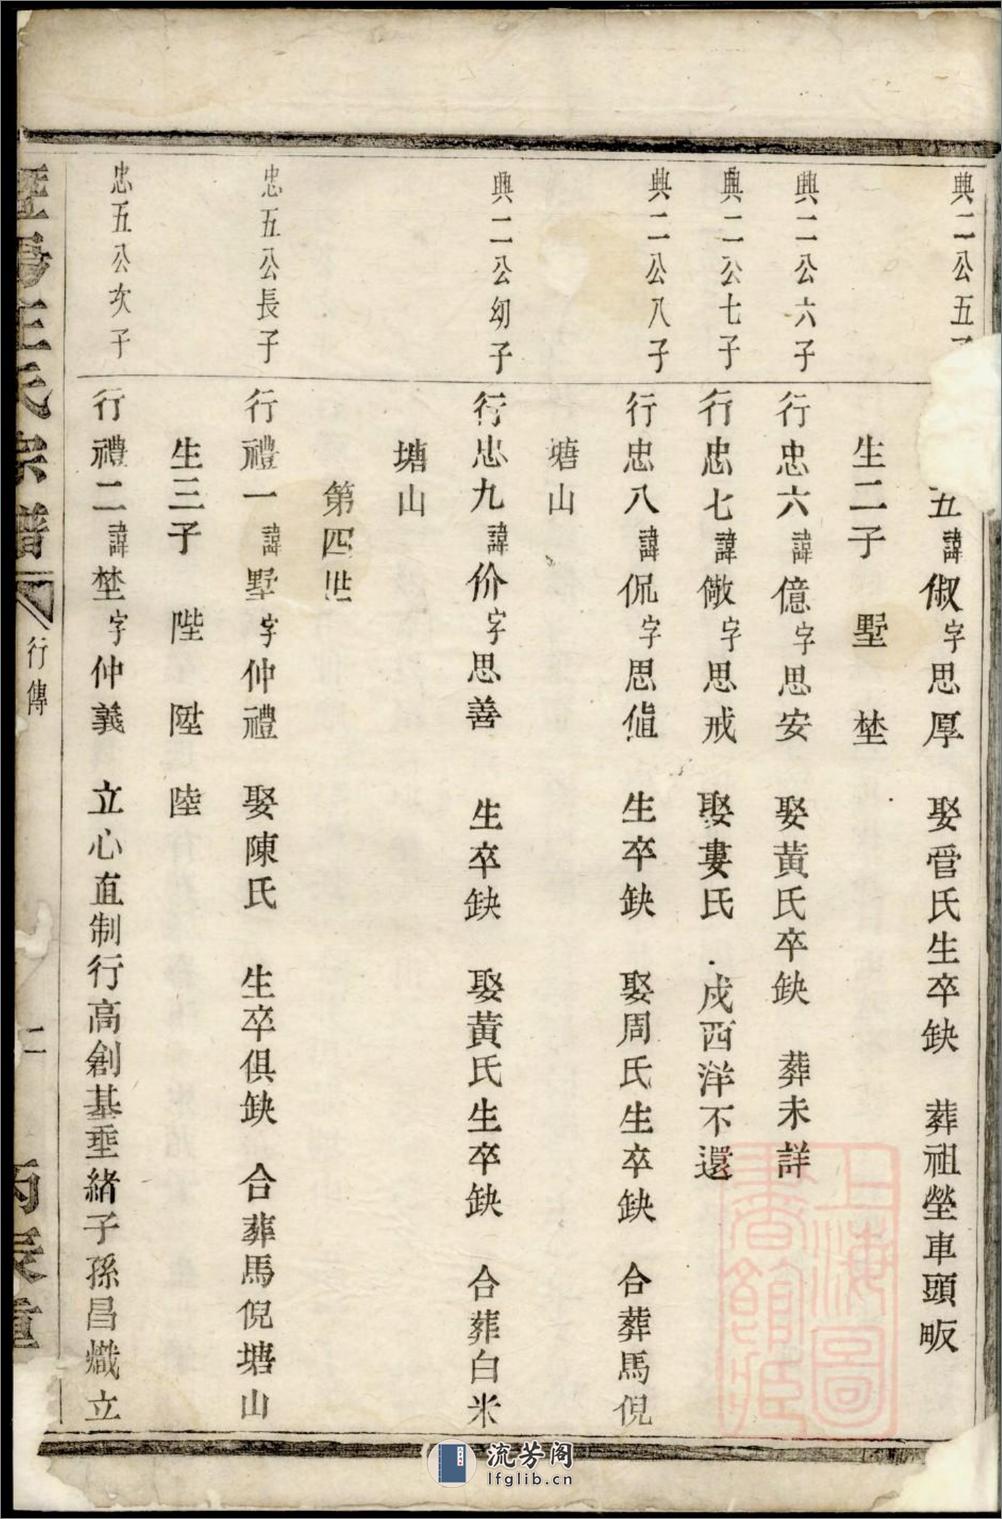 典二公五
五諱俶字思厚　娶管氏生卒缺　葬祖塋車頭畈
生二子　墅　埜
典二公六子
行忠六諱億字思安　娶黃氏卒缺　葬未詳
典二公七子
行忠七諱儆字思戒　娶婁氏　戍西洋不還
典二公八子
行忠八諱侃字思傎　生卒缺　娶周氏生卒缺　合葬馬倪
塘山
典二公幼子
行忠九諱价字思善　生卒缺　娶黃氏生卒缺　合葬白米
塘山
第四世
忠五公長子
行禮一諱墅字仲禮　娶陳氏　生卒俱缺　合葬馬倪塘山
生三子　陛　陞　陸
忠五公次子
行禮二諱埜字仲義　立心直制行高創基垂緒子孫昌熾立
暨陽王氏宗譜
行傳
二
丙辰重
上海圖
書館藏
流芳阁
lfglib.cn